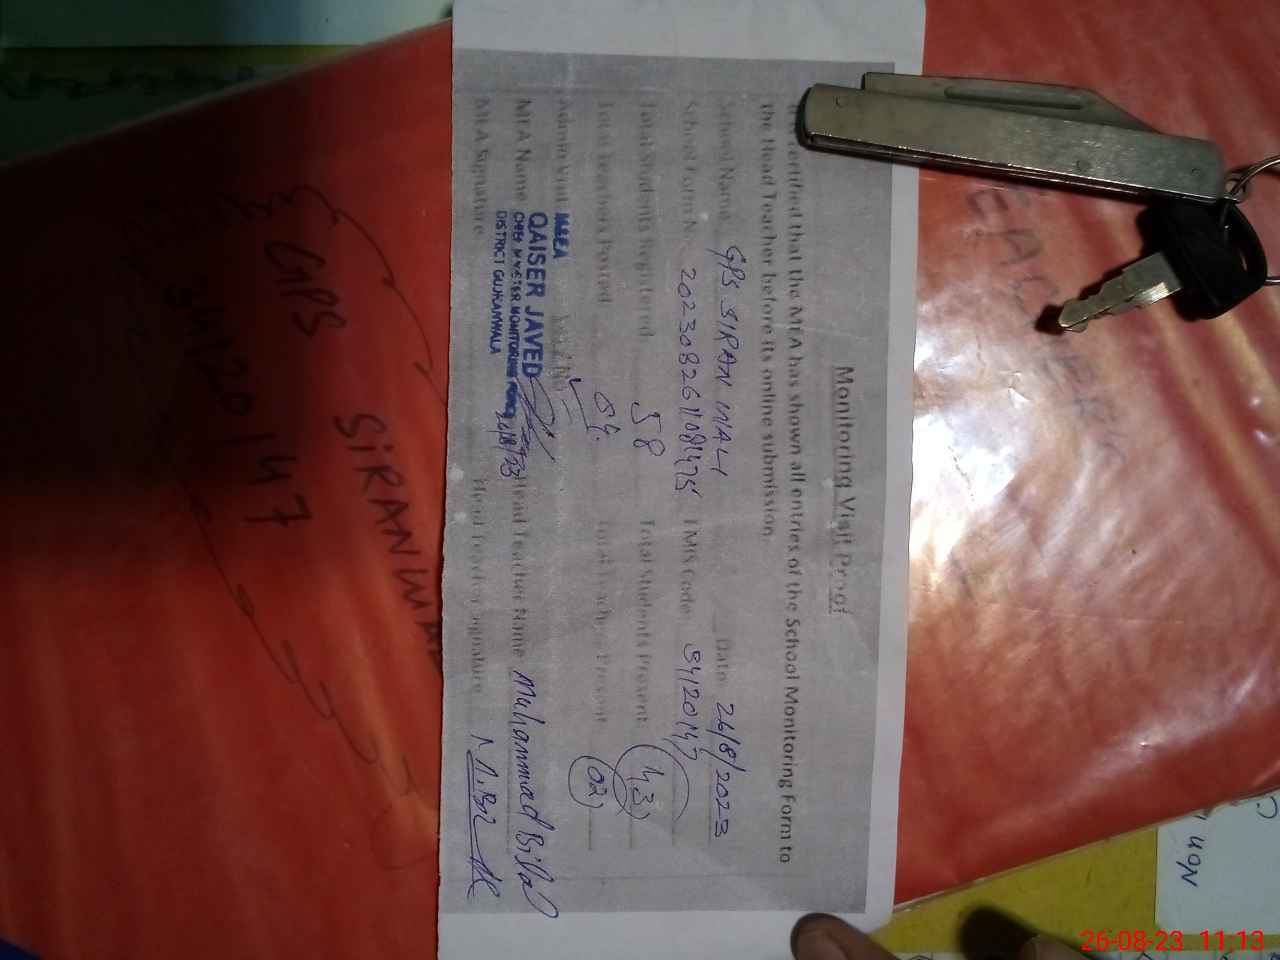 Monitoring Visit Proof
certified that the MEA has shown all entries of the School Monitoring Form to
the Head Teacher before its online submission.
School Name: GPS SIRAN WALI Date: 26/8/2023
School Form No: 20230826110811475 EMIS Code: 34120147
Total Students Registered: 58 Total Students Present: 43
Total Teachers Posted: 04 Total Teachers Present: 02
Admin Visit: Yes / No
MEA Name Head Teacher Name Muhammad Bilal
MEA Signature Head Teacher Signature M.Bilal
MEA
QAISER JAVED
CHIEF MINISTER MONITORING FORCE
DISTRICT GUJRANWALA
26/8/23
GPS SIRANWALI
34120147
26-08-23 11:13